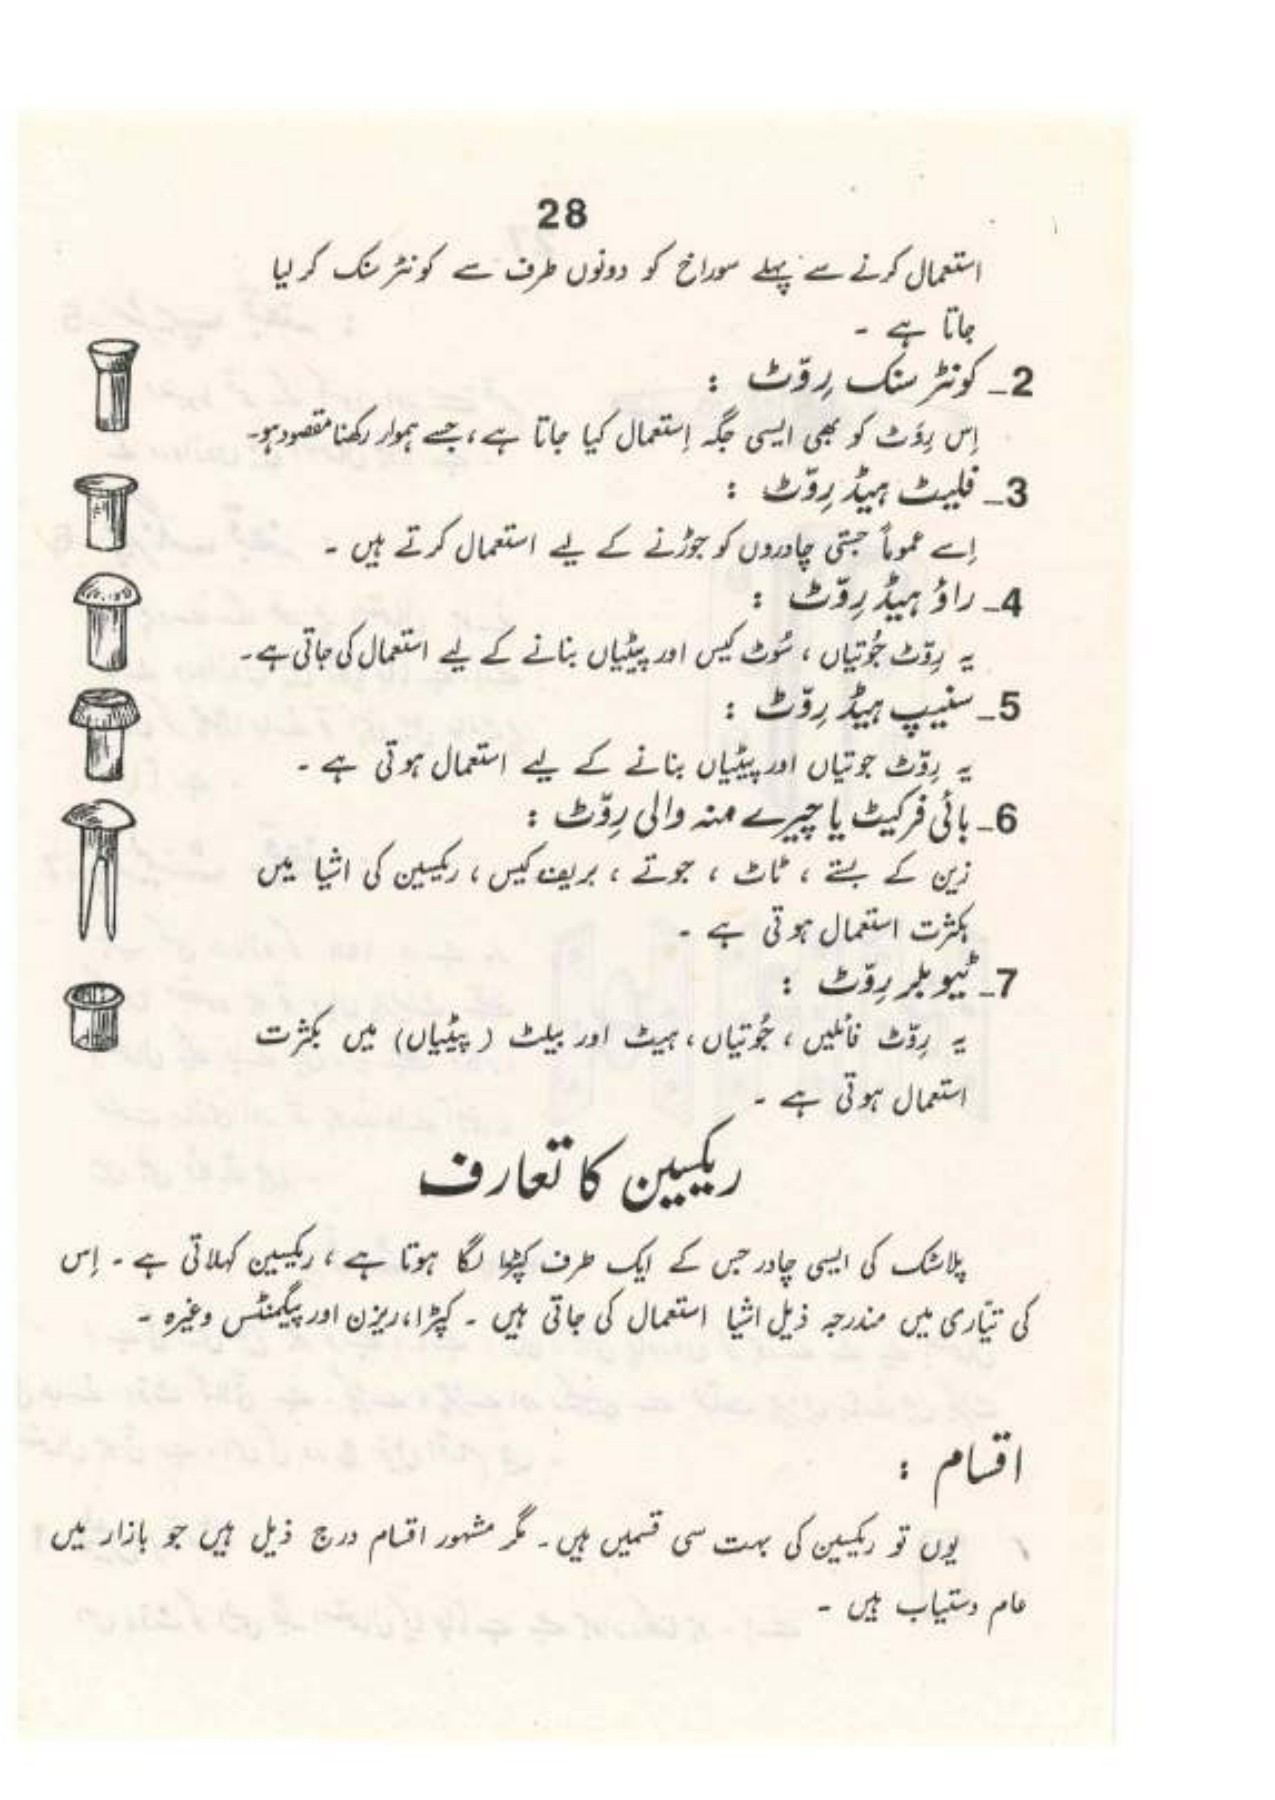 28
استعمال کرنے سے پہلے سوراخ کو دونوں طرف سے کونٹر سنک کر لیا
جاتا ہے ۔
2۔ کونٹر سنک رِوّٹ :
اِس رِوَٹ کو بھی ایسی جگہ اِستعمال کیا جاتا ہے، جسے ہموار رکھنا مقصود ہو۔
3۔ فلیٹ ہیڈ رِوّٹ :
اِسے عموماً جستی چادروں کو جوڑنے کے لیے استعمال کرتے ہیں ۔
4۔ راؤ ہیڈ رِوّٹ :
یہ رِوّٹ جُوتیاں ، سُوٹ کیس اور پیٹیاں بنانے کے لیے استعمال کی جاتی ہے۔
5۔ سنیپ ہیڈ رِوّٹ :
یہ رِوّٹ جوتیاں اور پیٹیاں بنانے کے لیے استعمال ہوتی ہے ۔
6۔ بائی فرکیٹ یا چیرے منہ والی رِوّٹ :
زین کے بستے ، ٹاٹ ، جوتے ، بریف کیس ، ریکسین کی اشیا میں
بکثرت استعمال ہوتی ہے ۔
7۔ ٹیوبلر رِوّٹ :
یہ رِوّٹ فائلیں ، جُوتیاں ، ہیٹ اور بیلٹ ( پیٹیاں) میں بکثرت
استعمال ہوتی ہے ۔
ریکسین کا تعارف
پلاسٹک کی ایسی چادر جس کے ایک طرف کپڑا لگا ہوتا ہے ، ریکسین کہلاتی ہے ۔ اِس
کی تیّاری میں مندرجہ ذیل اشیا استعمال کی جاتی ہیں ۔ کپڑا ، ریزن اور پگمنٹس وغیرہ ۔
اقسام :
یوں تو ریکسین کی بہت سی قسمیں ہیں ۔ مگر مشہور اقسام درج ذیل ہیں جو بازار میں
عام دستیاب ہیں ۔